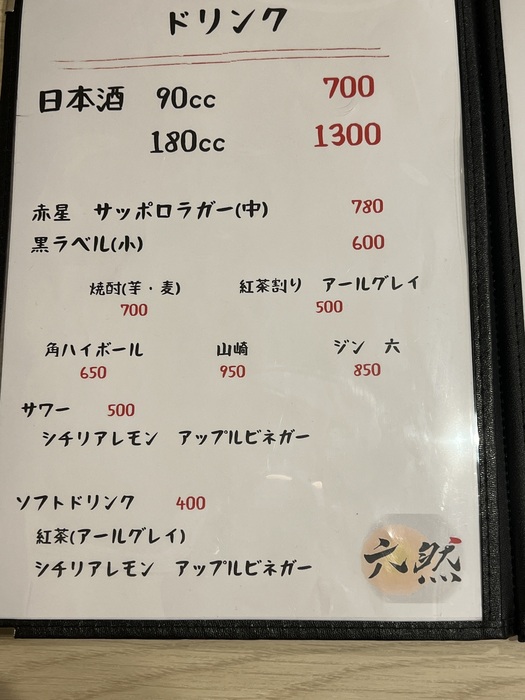 ドリンク
日本酒 90cc 700
180cc 1300
赤星 サッポロラガー(中) 780
黒ラベル(小) 600
焼酎(芋・麦) 紅茶割り アールグレイ
700 500
角ハイボール 山崎 ジン 六
650 950 850
サワー 500
シチリアレモン アップルビネガー
ソフトドリンク 400
紅茶(アールグレイ)
シチリアレモン アップルビネガー
六然